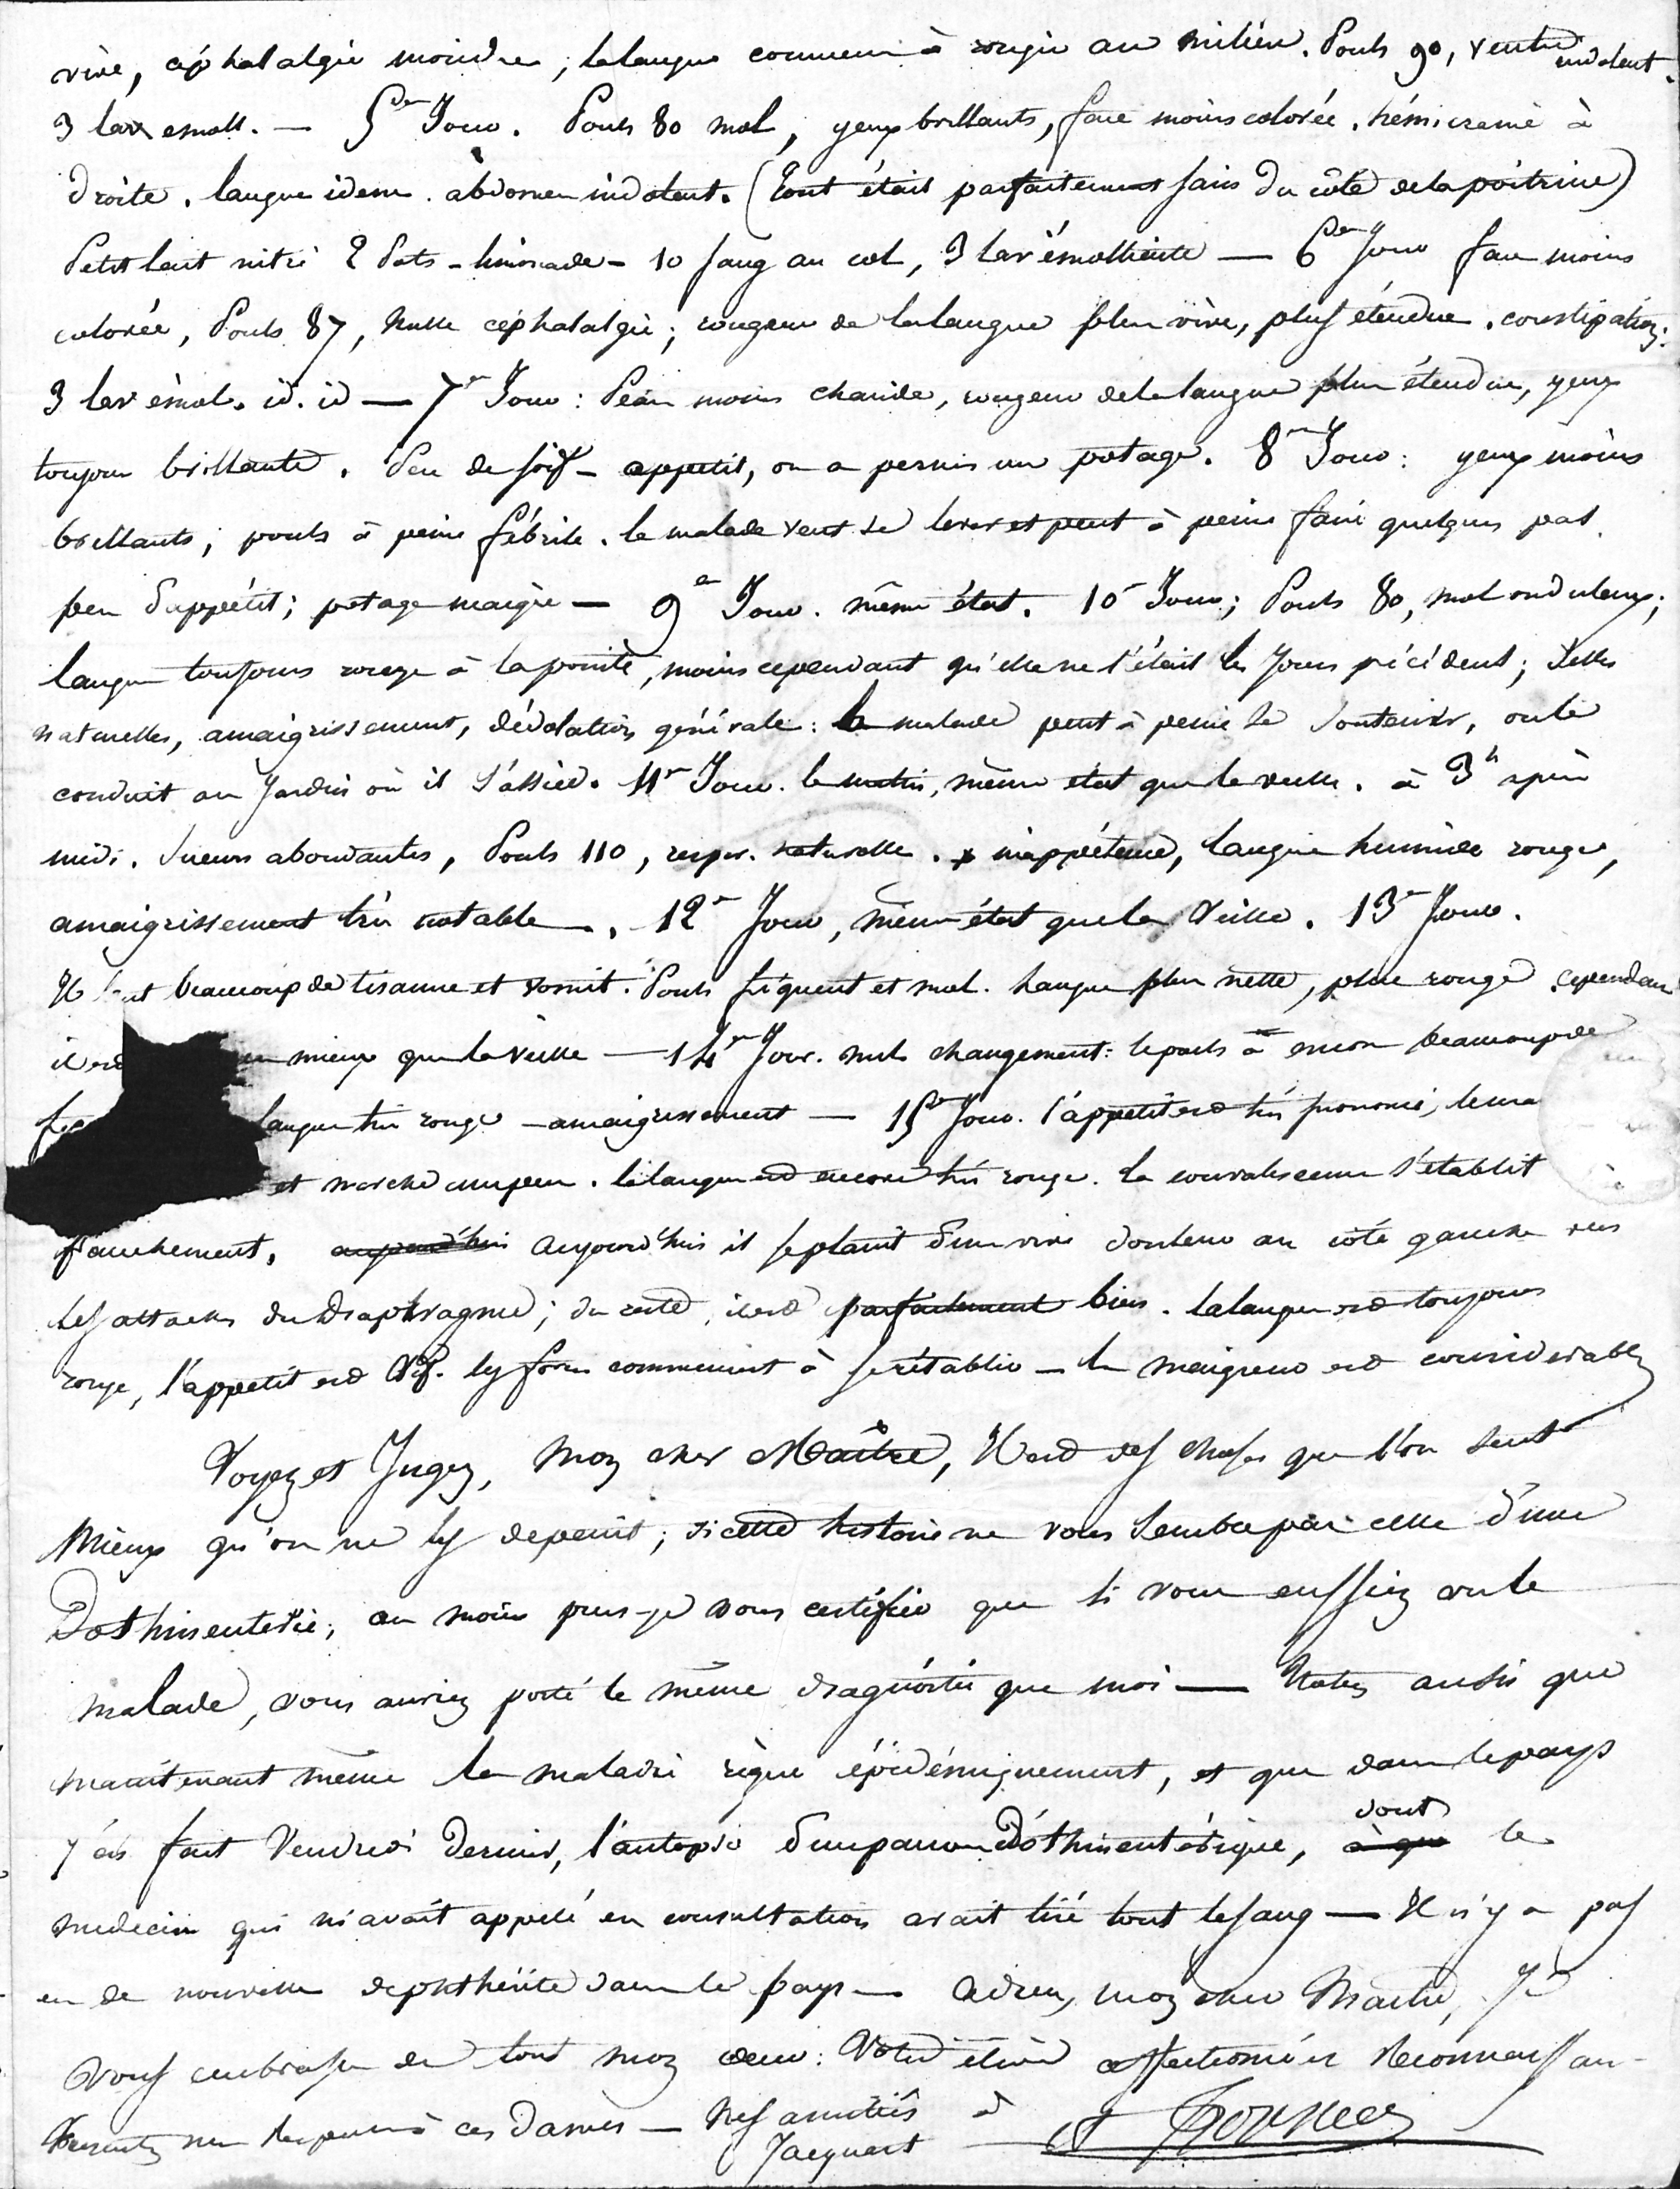 vive, céphalalgie moindre, la langue commence à rougir au milieu. Pouls 90, ventre indolent.
3 lav emoll. — 5e Jour. Pouls 80 mol, yeux brillants, face moins colorée. hémicranie à
droite. langue idem. abdomen indolent. (tout était parfaitement sain du côté de la poitrine)
Petit lait nitré 2 Pots - limonade - 10 sang au col, 3 lav émolliente — 6e Jour face moins
colorée, Pouls 87, nulle céphalalgie; rougeur de la langue plus vive, plus étendue. constipation.
3 lav émol. id. id — 7e Jour: Peau moins chaude, rougeur de la langue plus étendue, yeux
toujours brillants. Peu de soif - appetit, on a permis un potage. 8e Jour: yeux moins
brillants; pouls à peine fébrile. le malade veut se lever et peut à peine faire quelques pas.
peu d'appétit; potage maigre — 9e Jour. même état. 10e Jour; Pouls 80, mol onduleux;
langue toujours rouge à la pointe, moins cependant qu'elle ne l'était les jours précédents; selles
naturelles, amaigrissement, générale: le malade peut à peine se soutenir, on le
conduit au jardin où il s'assied. 11e Jour. le matin, même état que la veille. à 3h après
midi. sueurs abondantes, Pouls 110, respir. naturelle. inappétence, langue humide rouge,
amaigrissement très notable. 12e Jour, même état que la veille. 13e Jour.
Il boit beaucoup de tisanne et vomit. Pouls fréquent et mol. Langue plus nette, plus rouge. cependant
il est mieux que la veille — 14e Jour. nul changement: le pouls a encore beaucoup de
langue très rouge - amaigrissement — 15e Jour. l'appetit est très prononcé,
et marche un peu. la langue est encore très rouge. la convalescence s'établit
franchement, aujourd'hui Aujourd'hui il se plaint d'une vive douleur au côté gauche vers
les attaches du diaphragme; du reste, il est parfaitement bien. la langue est toujours
rouge, l'appetit est vif. les forces commencent à se rétablir — la maigreur est considérable
Voyez et Jugez, mon cher Maître, Il est des choses que l'on sent
Mieux qu'on ne les depeint; si cette histoire ne vous semble pas celle d'une
Dothinenterie, au moins puis-je vous certifier que si vous eussiez vu le
malade, vous auriez porté le même diagnostic que moi — Notez aussi que
maintenant même la maladie règne épidémiquement, et que dans le pays
j'ai fait Vendredi dernier, l'autopsie d'un Dothinentérique, à qui dont le
medecin qui m'avait appelé en consultation avait tiré tout le sang — Il n'y a pas
eu de nouvelle diphthérite dans le pays — adieu, mon cher Maître, Je
vous embrasse de tout mon coeur: Votre élève affectionné et Reconnaissant
Présentez mes respects à ces Dames — Mes amitiés à
Jacquart
A Trousseau